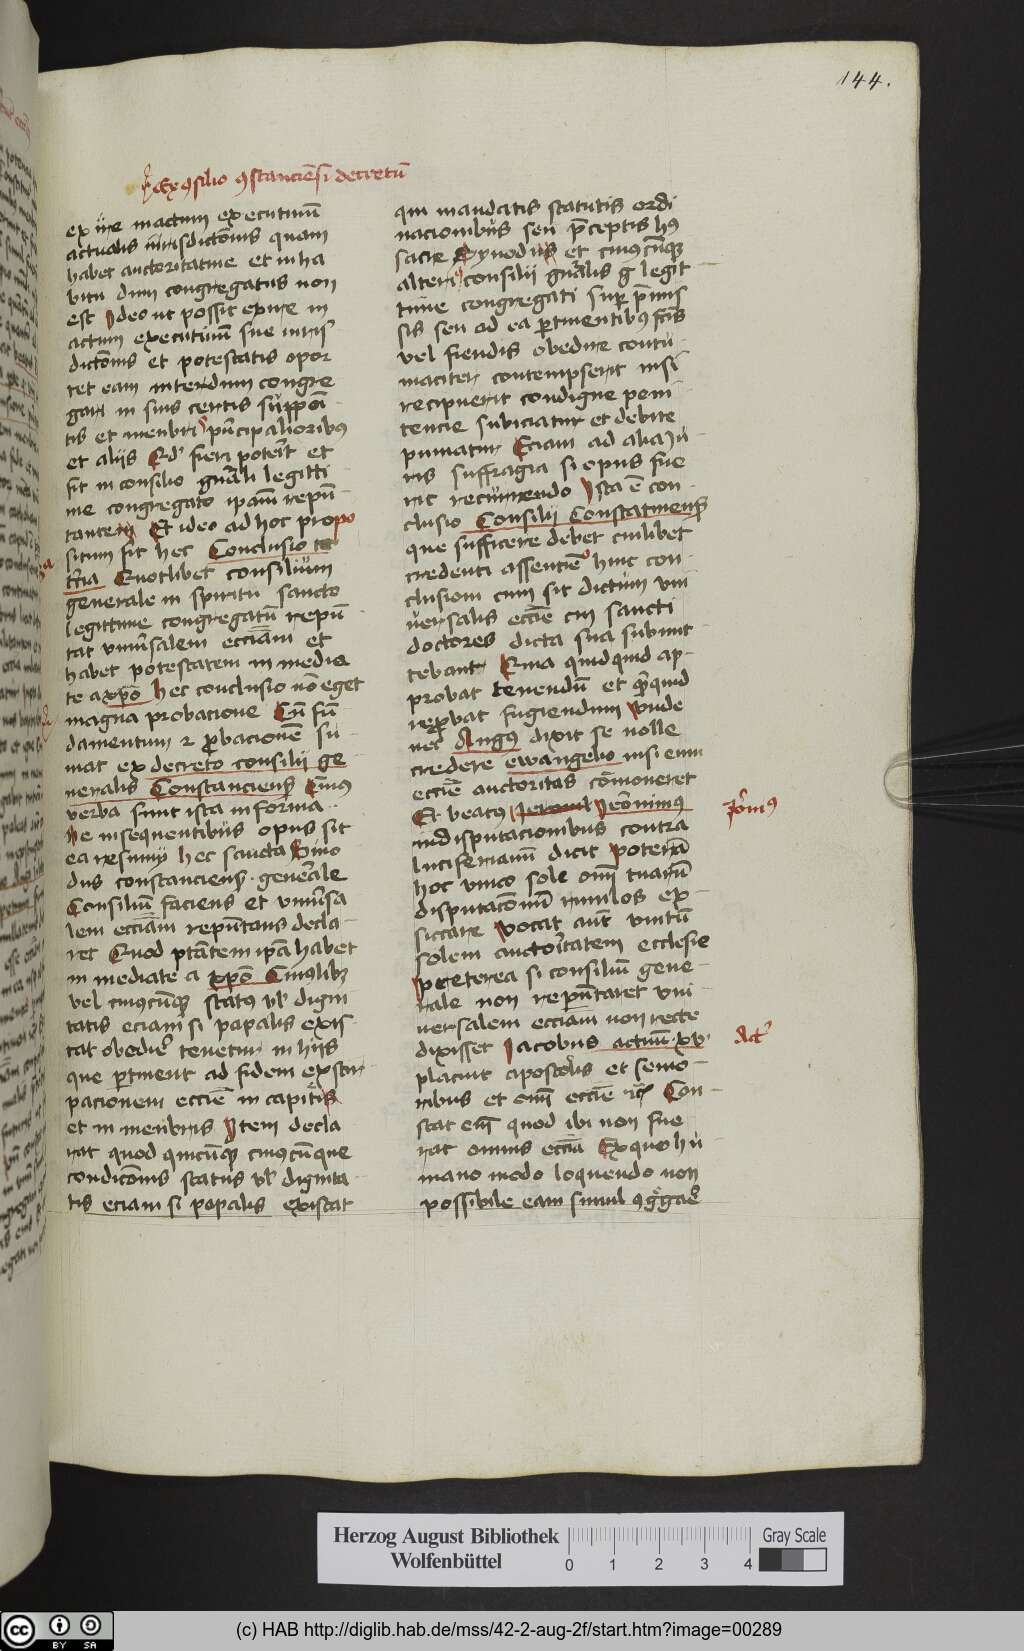 144.
Ex ꝯsilio ꝯstanciēsi decretū
ex iire in actum executiuū
actualis iurisdictōnis quam
habet auctoritatiue et in ha
bitu dum congregatus non
est Ideo ut possit exire in
actum executiuū sue iuris
dictōnis et potestatis opor
tet eam interdum congre
gari in suis certis suppoī
tis et menbris pͥncipalioribꝯ
et aliis Qd' fieri poterit et
fit in consilio gn̄ali legitti
me congregato ipam̄ repn̄
tantem Et ideo ad hoc propo
situm sit hec Conclusio te
rcia Quotlibet consilium
generale in spiritu sancto
legittime congregatū repn̄
tat vniu̾salem eccīam et
habet potestatem in media
te a xp̄o Hec conclusio nō eget
magna probacione Cū fū
damentum ⁊ ꝓbacionē su
mat ex decreto consilii ge
neralis Constanciens̾ Cuiꝯ
verba sunt ista in forma
Ne in sequentibus opus sit
ea resumi hec sancta Sino
dus constanciens̾ generale
Consiliū faciens et vniu̾sa
lem eccīam repn̄tans decla
ret Quod ptātem ip̄a habet
in mediate a xp̄o Cui ꝯlibꝫ
vel cuiꝯcūqꝫ statꝯ vl' digni
tatis eciam si papalis exis
tat obedir̾ tenetur in hiis
que ꝑtinent ad fidem et extir
pacionem eccīe in capitis
et in menbris Item decla
rat quod quicūqꝫ cuiꝯcūnque
condicōnis status vl' dignita
tis eciam si papalis existat
qui mandatis statutis ordi
nacionibus seu p̄ceptis hꝯ
sacre Synodus et cuiꝯcūqꝫ
alteriꝯ consilii gn̄alis g legit
time congregati suꝑ p̄mis
sis seu ad ea ꝑtinentibꝯ fc̄is
vel fiendis obedire contu
maciter contempserit nisi
recipuerit condigne peni
tencie subiciatur et debite
puniatur Eciam ad alia iu
ris suffragia si opus fue
rit recurrendo Ista ē con
clusio Consilii Constanciens̾
que sufficere debet cuilibet
credenti assentire huic con
clusioni cum sit dictum vni
uersalis eccīe cui sancti
doctores dicta sua submit
tebant Quia quidquid ap
probat tenendū et q̄cquid
reꝓbat fugiendum Vnde
Augꝯ dixit se nolle
credere ewangelio nisi eum
eccīe auctoritas cōmoneret
Et beatus Jeronimꝯ
in disputacionibus contra
luciferianū dicit Poterā
hoc vnico sole om̄ tuarū
disputacōnū riuulos ex
siccare vocat aut̄ vnitū
solem auctoritatem ecclesie
Preterea si consiliū gene
rale non repn̄taret vni
uersalem eccīam non recte
dixisset Iacobus actuū xv
placuit apostolis et senio
ribus et om̄i eccīe ⁊c̄ Con
stat em̄ quod ibi non fue
rat omnis eccīa Ex quo hu
mano modo loquendo non
possibile eam simul ꝯg̾gar̾
Jeronimꝯ
Act'
Herzog August Bibliothek
Wolfenbüttel
0 1 2 3 4
Gray Scale
cc BY SA
(c) HAB http://diglib.hab.de/mss/42-2-aug-2f/start.htm?image=00289